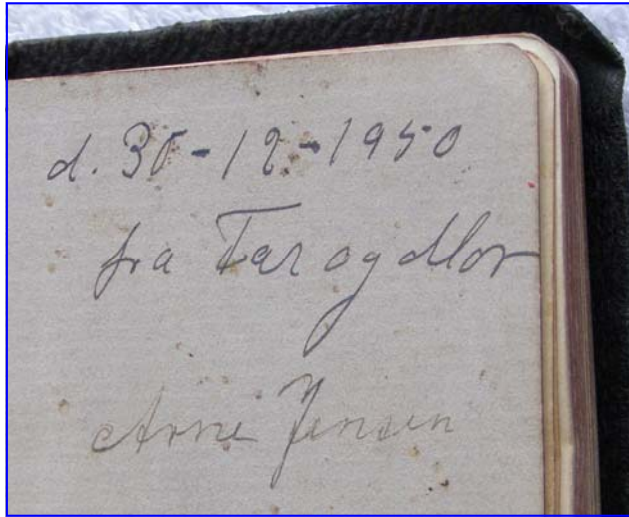 d. 30-12-1950
fra Far og Mor
Arne Jensen